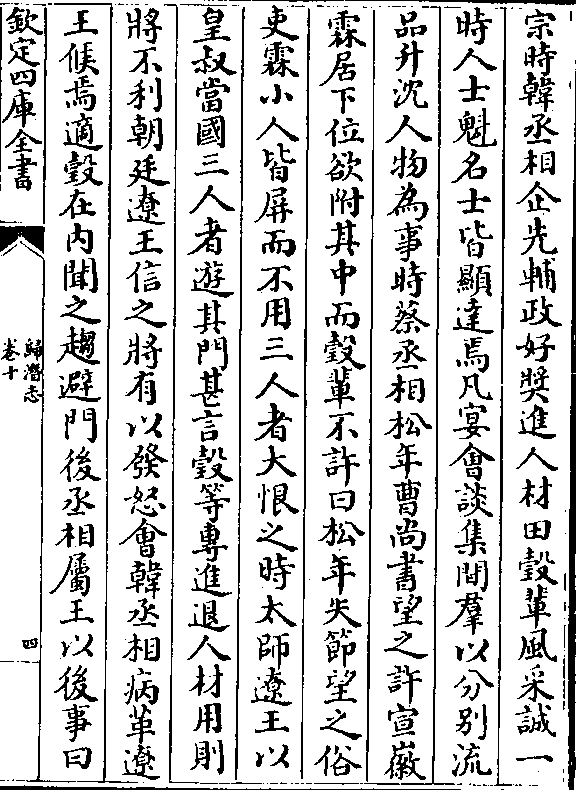 宗時韓丞相企先輔政好奬進人材田瑴輩風采誠一
時人士魁名士皆顯達焉凡宴會談集間羣以分别流
品升沈人物為事時蔡丞相松年曹尚書望之許宣徽
霖居下位欲附其中而瑴輩不許曰松年失節望之俗
吏霖小人皆屏而不用三人者大恨之時太師遼王以
皇叔當國三人者遊其門甚言瑴等專進退人材用則
將不利朝廷遼王信之將有以發怒會韓丞相病革遼
王候焉適瑴在内聞之趨避門後丞相屬王以後事曰
欽定四庫全書
歸潛志
卷十
四